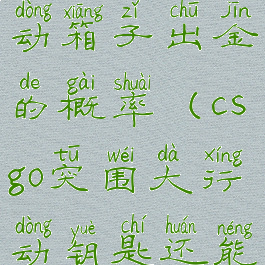 dòng xiāng zǐ chū jīn
动箱子出金
de gài shuài
的概率（cs
tū wéi dà xíng
go突围大行
dòng yuè chí huán néng
动钥匙还能